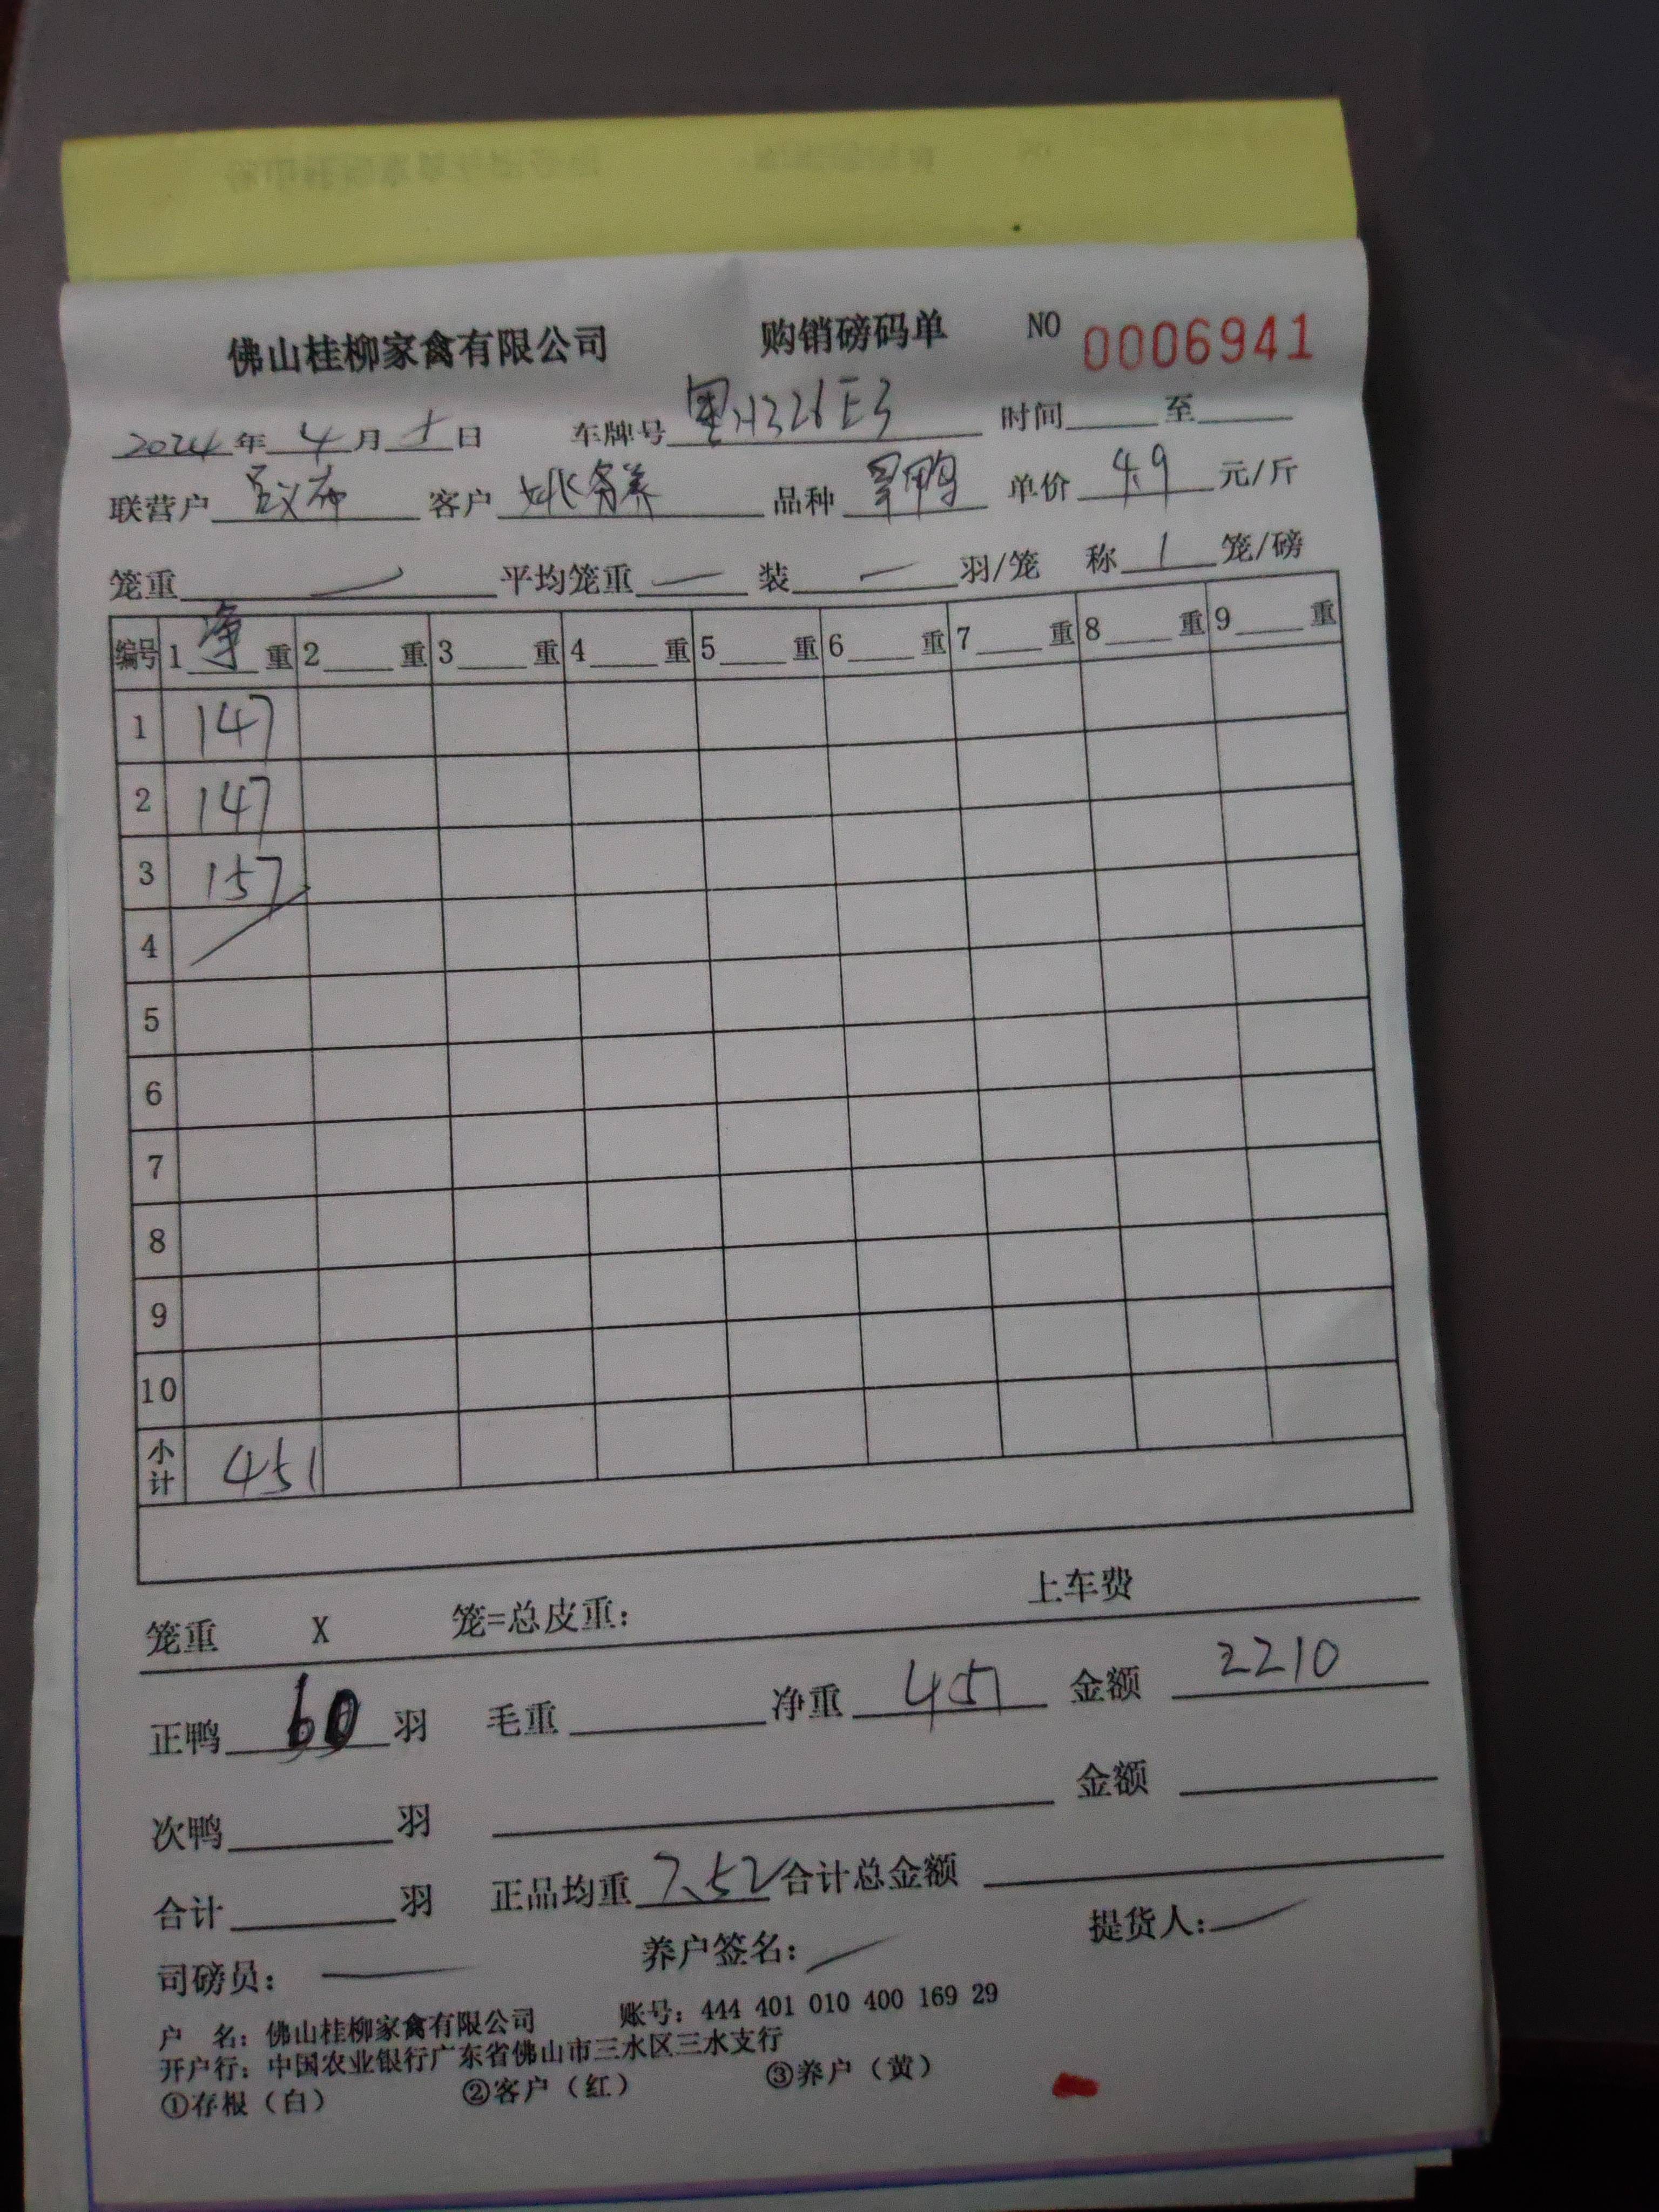 佛山桂柳家禽有限公司 购销磅码单 NO 0006941
2024年 4月 七日 车牌号 H326E3 时间____至____
联营户 客户 姚 品种 鸭 单价 4.9 元/斤
笼重 — 平均笼重 — 装 — 羽/笼 称 1 笼/磅
编号 1 净 重 2____重 3____重 4____重 5____重 6____重 7____重 8____重 9____重
1 147
2 147
3 157
4
5
6
7
8
9
10
小计 451
笼重 X 笼=总皮重: 上车费
正鸭 60 羽 毛重____ 净重 451 金额 2210
次鸭____羽 ____ 金额____
合计____羽 正品均重 7.52 合计总金额____
司磅员: — 养户签名: — 提货人: —
户 名: 佛山桂柳家禽有限公司 账号: 444 401 010 400 169 29
开户行: 中国农业银行广东省佛山市三水区三水支行
①存根（白） ②客户（红） ③养户（黄）